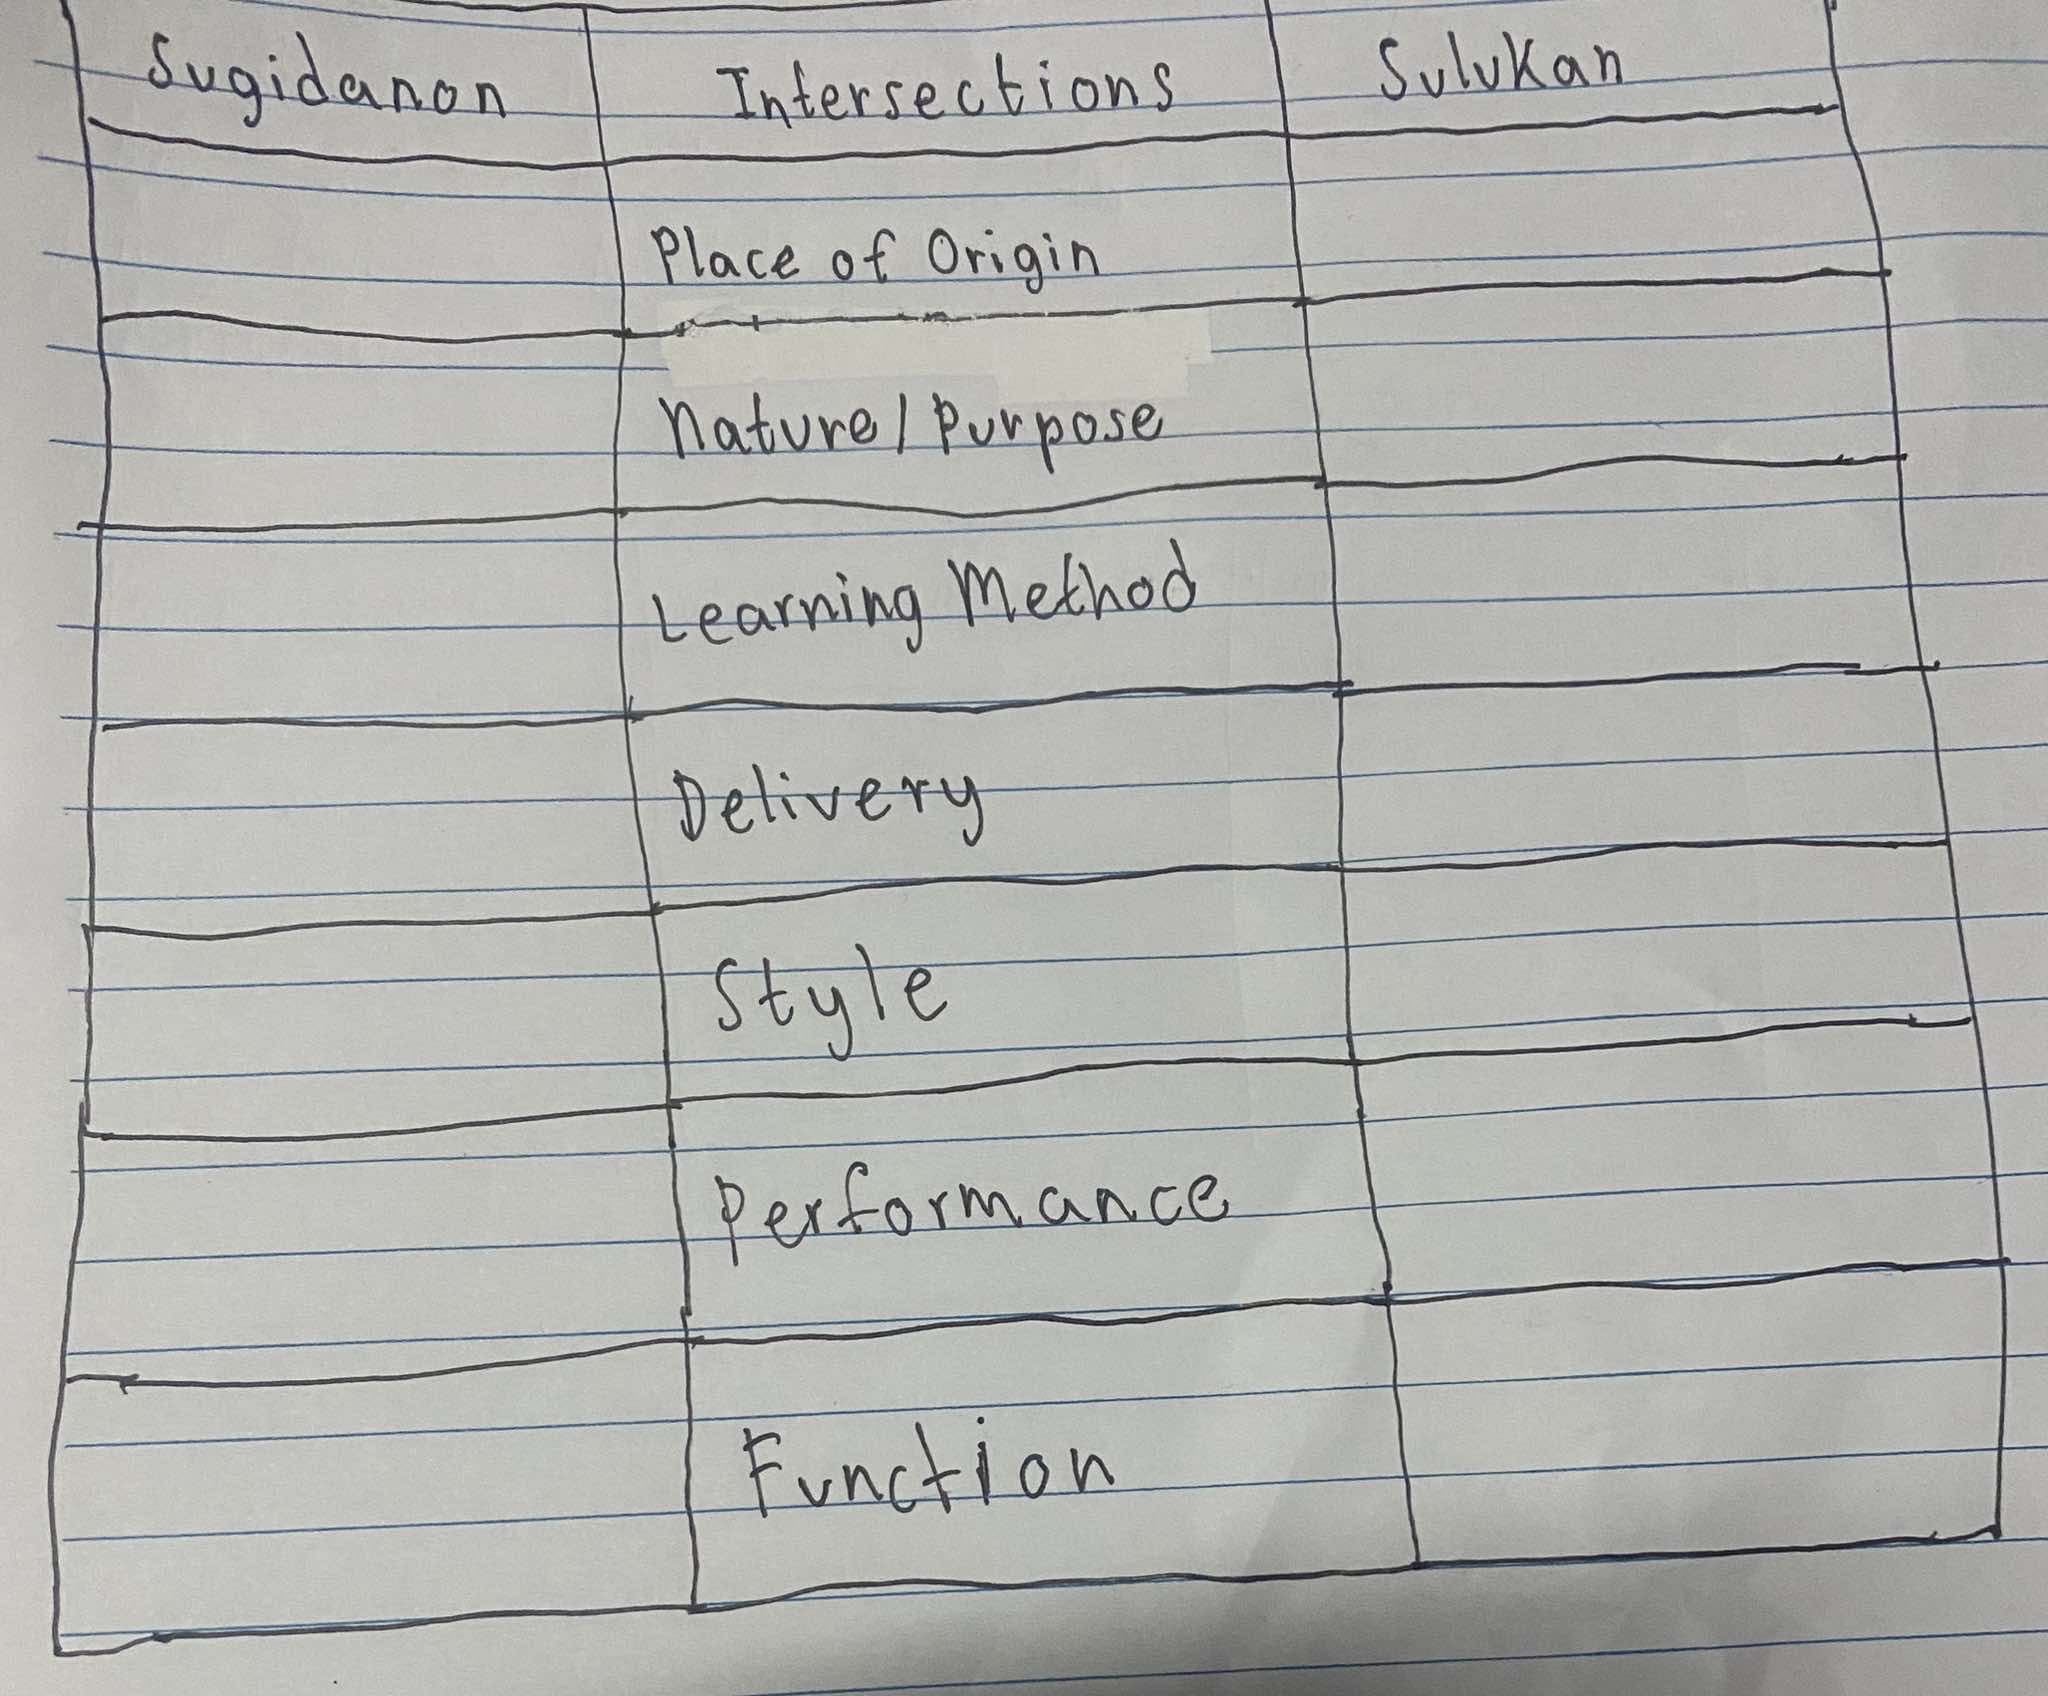 Sugidanon Intersections Sulukan
Place of Origin
Nature/Purpose
Learning Method
Delivery
Style
Performance
Function